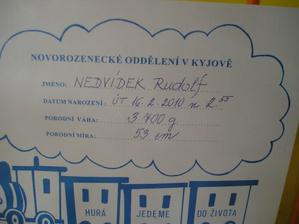 NOVOROZENECKÉ ODDĚLENÍ V KYJOVĚ
JMÉNO: NEDVÍDEK Rudolf
DATUM NAROZENÍ: ÚT 16.2.2010 v 2 55
PORODNÍ VÁHA: 3 400 g
PORODNÍ MÍRA: 53 cm
HURÁ JEDEME DO ŽIVOTA